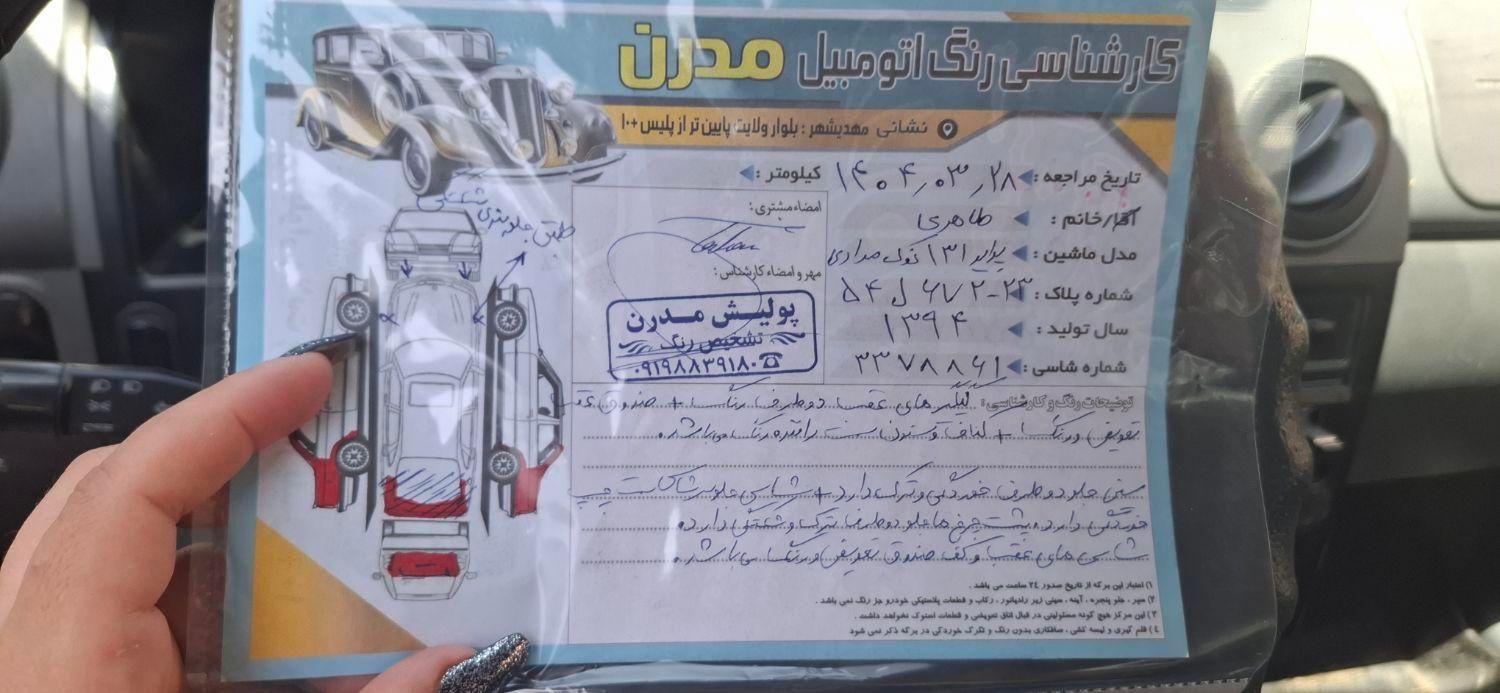 کارشناسی رنگ اتومبیل مدرن
نشانی مهدیشهر : بلوار ولایت پایین تر از پلیس +۱۰
تاریخ مراجعه : ۱۴۰۴٫۰۳٫۲۸
کیلومتر :
آقا/خانم : طاهری
مدل ماشین : پراید ۱۳۱ نوک مدادی
شماره پلاک : ۵۴ ل ۶۷۲-۲۳
سال تولید : ۱۳۹۴
شماره شاسی : ۳۳۷۸۸۶۱
امضاء مشتری :
مهر و امضاء کارشناس :
پولیش مدرن
تشخیص رنگ
۰۹۱۹۸۸۳۹۱۸۰
طبق جلو بندی شکستگی
توضیحات رنگ و کارشناسی : گلگیر های عقب دو طرف رنگ + صندوق عقب
تعویض و رنگ + لچک و ستون سمت راننده رنگ می باشد.
سینی جلو دو طرف خوردگی و ترک دارد + سرشاسی جلو سرشاسی سمت چپ
خوردگی دارد. پشت چرغ ها جلو دو طرف ترک و شکستگی دارد.
شاسی های عقب و کف صندوق تعویض و رنگ می باشد.
۱) اعتبار این برگه از تاریخ صدور ۲٤ ساعت می باشد .
۲) سپر ، جلو پنجره ، آینه ، سینی زیر رادیاتور ، رکاب و قطعات پلاستیکی خودرو جز رنگ نمی باشد .
۳) این مرکز هیچ گونه مسئولیتی در قبال اتاق تعویضی و قطعات استوک نخواهد داشت .
٤) قلم گیری و لیسه کشی ، صافکاری بدون رنگ و تگرگ خوردگی در برگه ذکر نمی شود